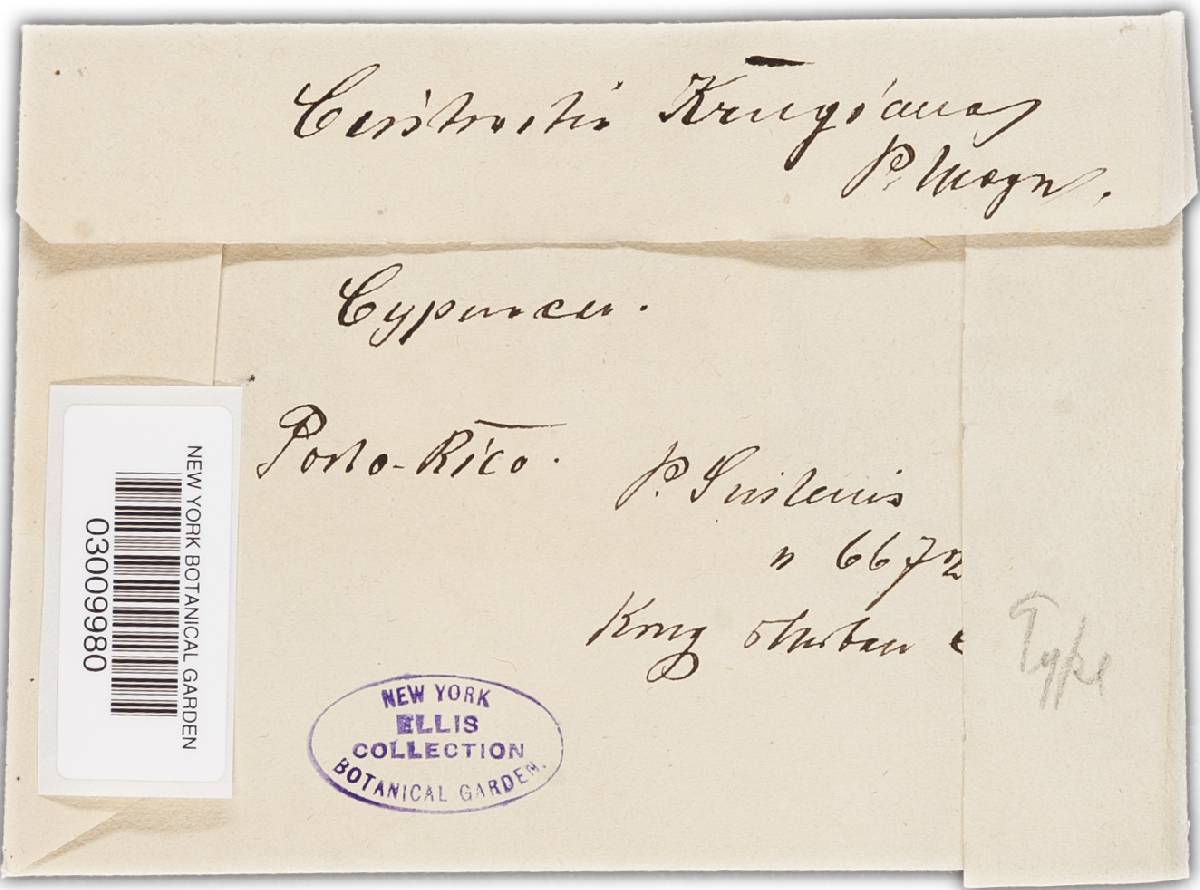 Cintractia Krugiana
P. Magn.
Cyperacea.
Porto-Rico.
P. Sintenis
n 6672
Krug & Urban
Type
NEW YORK BOTANICAL GARDEN
03009980
NEW YORK
ELLIS
COLLECTION
BOTANICAL GARDEN.